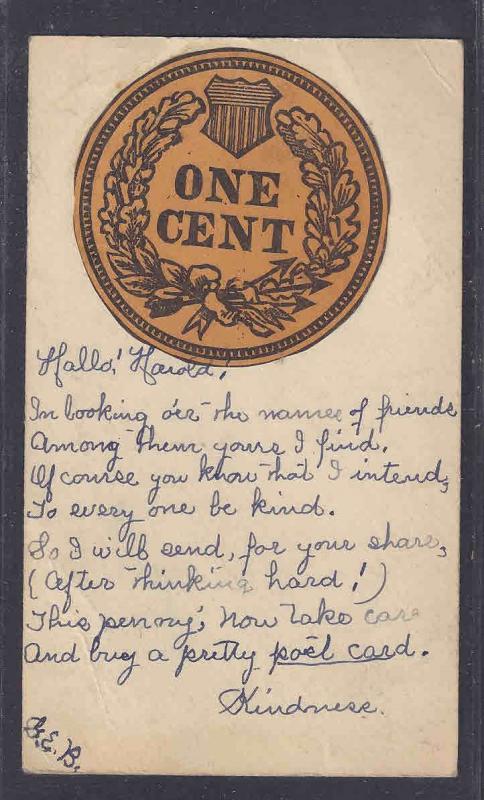 ONE
CENT
Hallo! Harold!
In looking o'er the names of friends
Among them yours I find.
Of course you know that I intend,
To every one be kind.
So I will send, for your share,
(After thinking hard!)
This penny; now take care
And buy a pretty post card.
Kindness.
G.E.B.